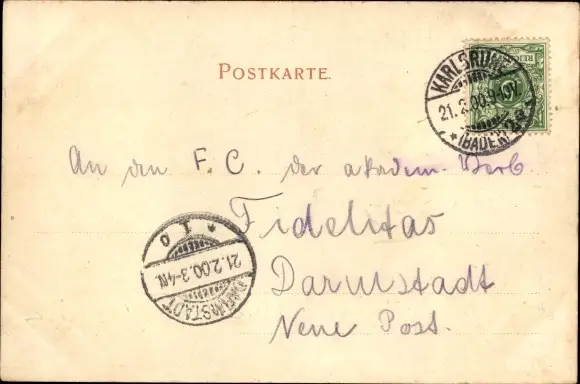 POSTKARTE.
KARLSRUHE
21.2.00.
(BADEN)
An den F. C. der akadem. Verb
Fidelitas
Darmstadt
Neue Post.
DARMSTADT
21.2.00.3-4N.